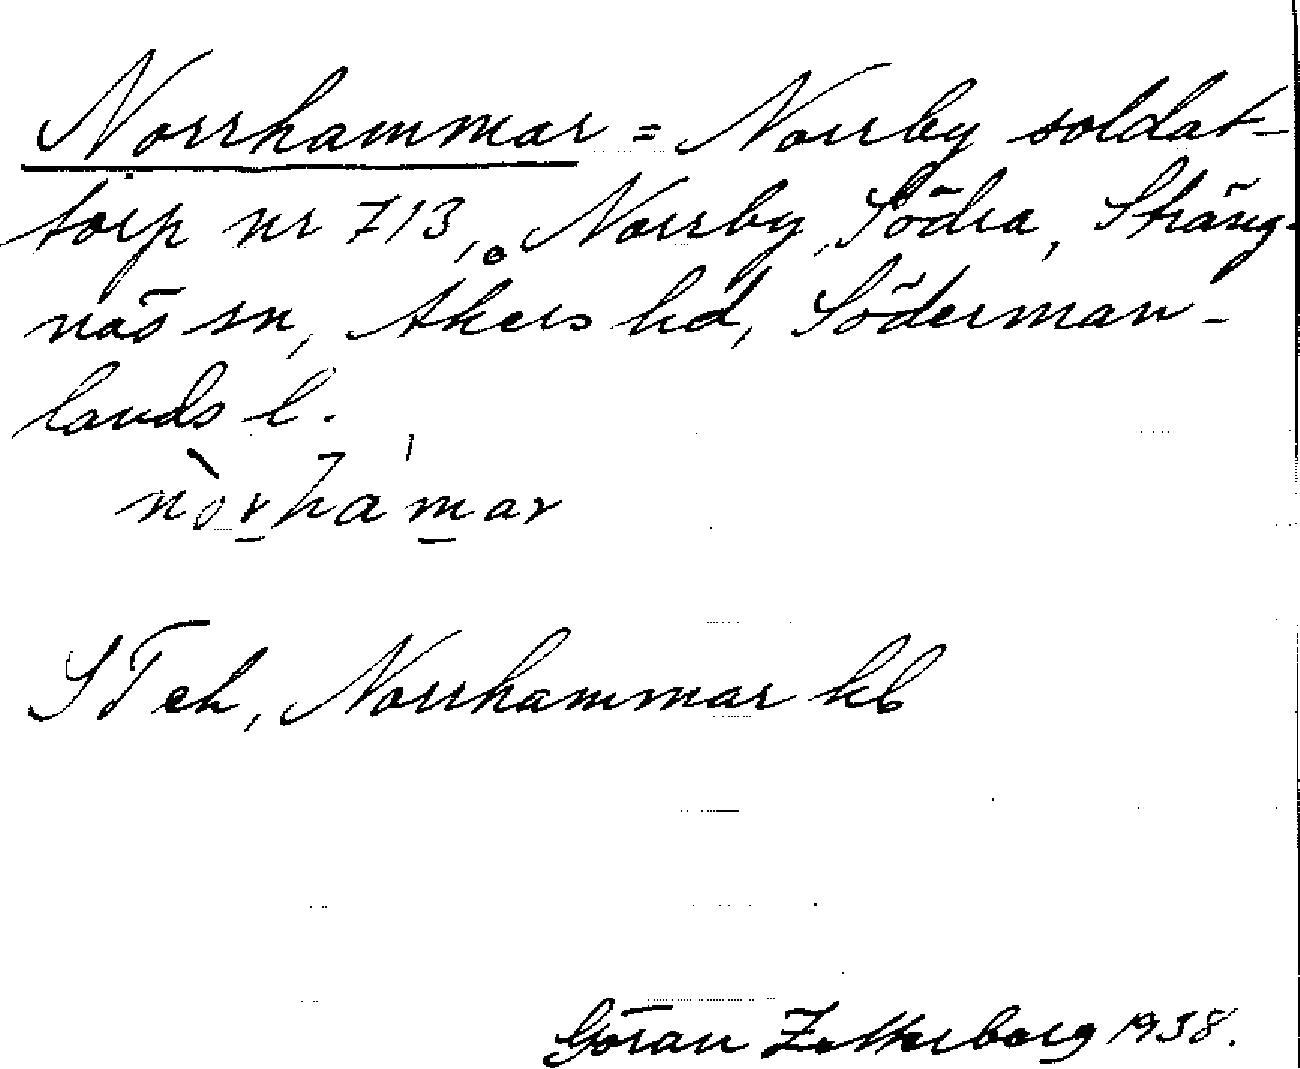 Norrhammar = Norrby soldat-
torp nr 713, Norrby, Södra, Sträng-
näs sn, Åkers hd, Söderman-
lands l.
nòrha'mar
STeh, Norrhammar hb
Göran Zetterborg 1938.